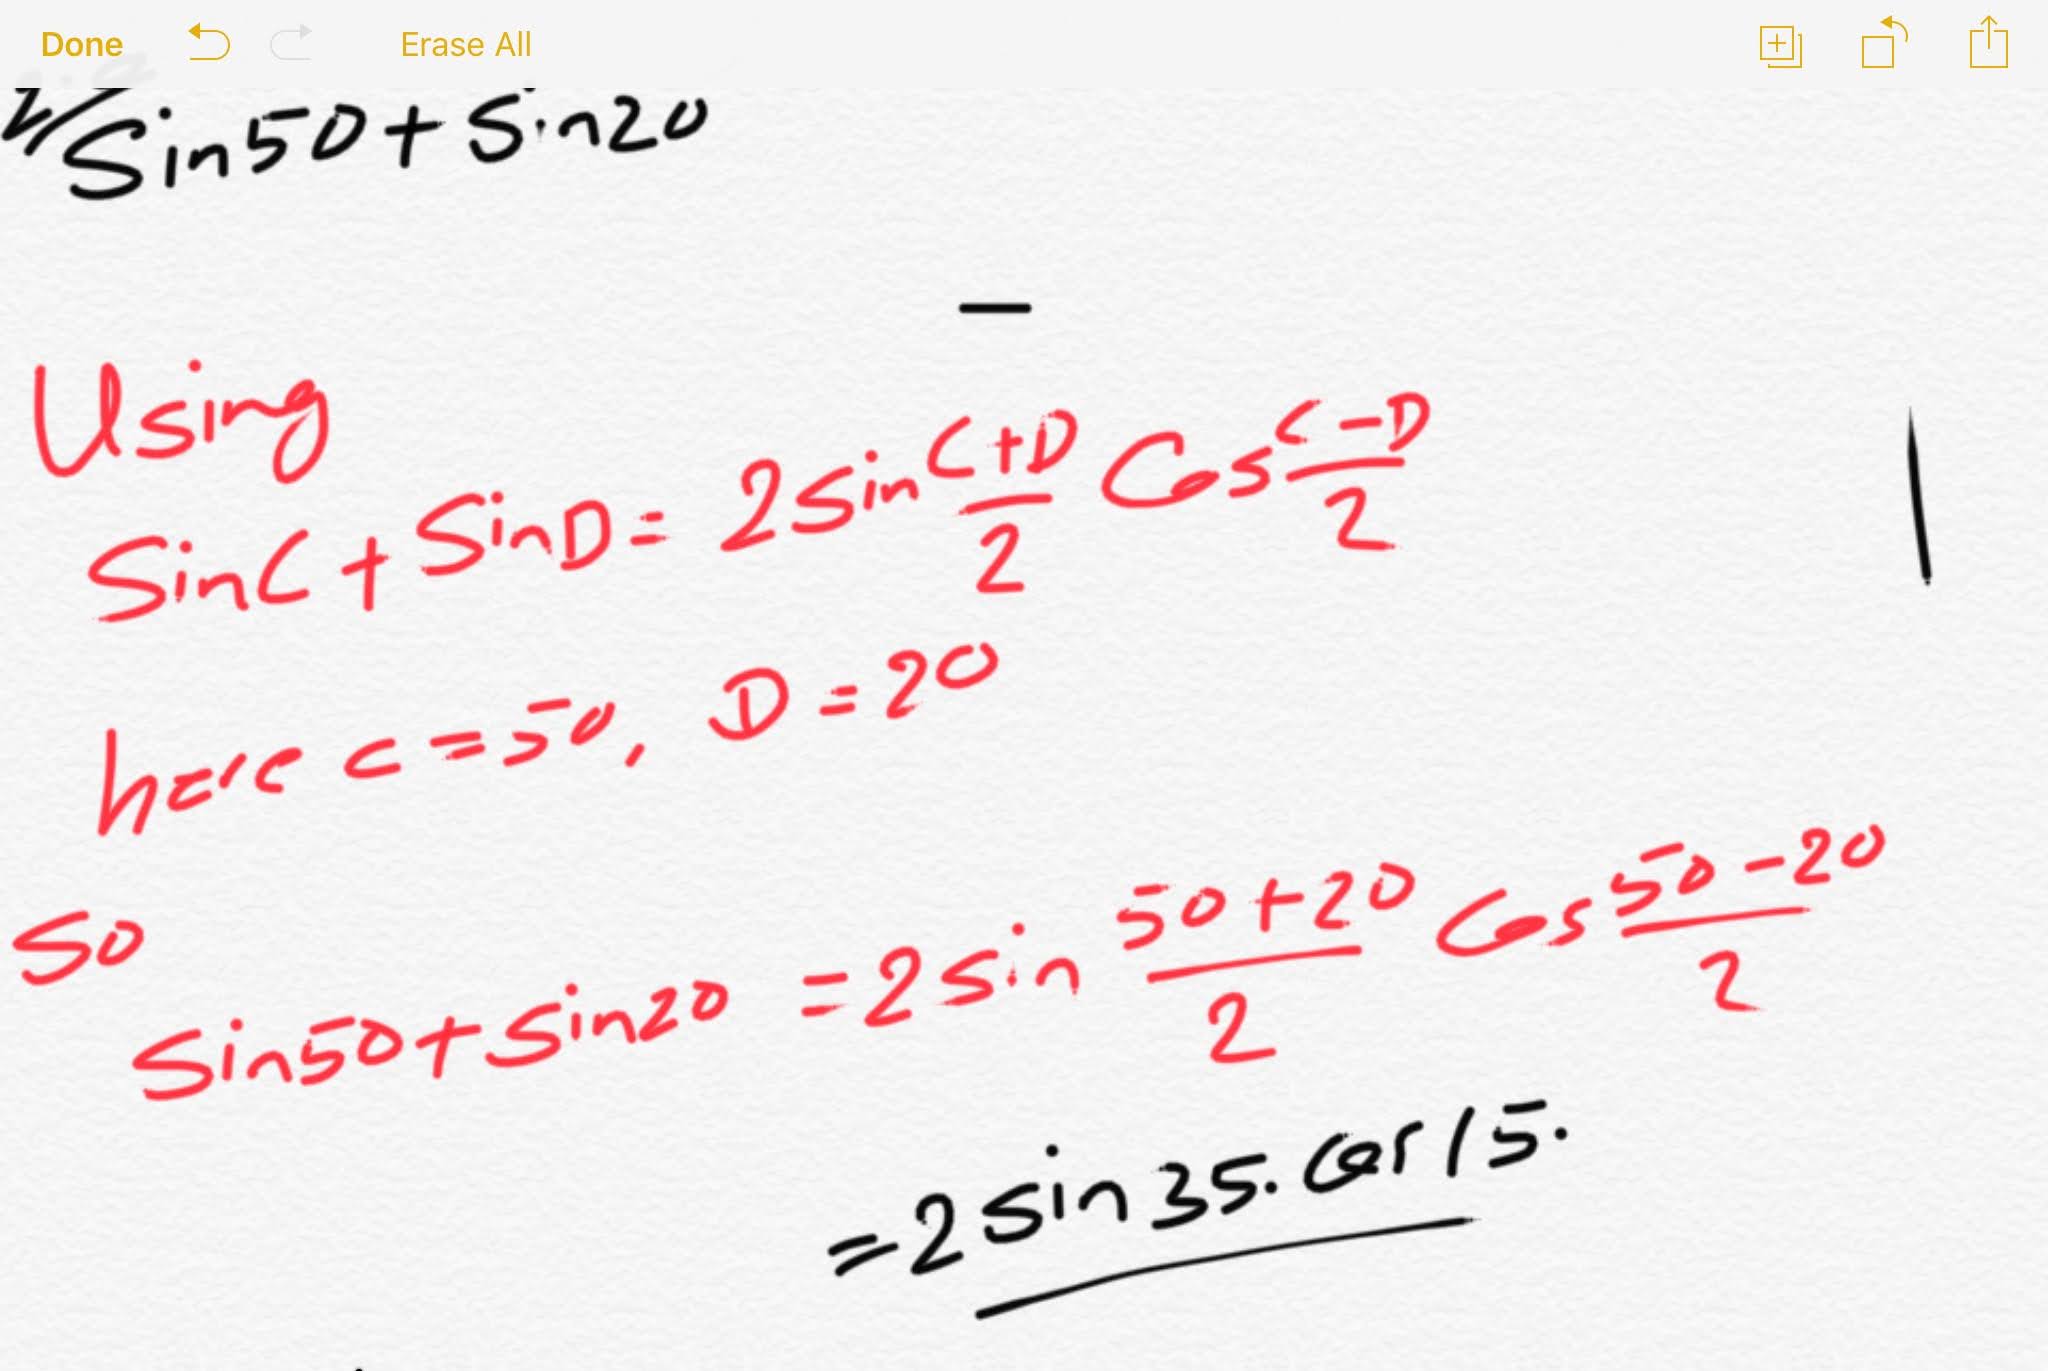 Done Erase All
Sin50+Sin20
Using
SinC + SinD = 2Sin (C+D)/2 Cos (C-D)/2
here c = 50, D = 20
So
Sin50+Sin20 = 2Sin (50+20)/2 Cos (50-20)/2
= 2 Sin 35. Cos 15.